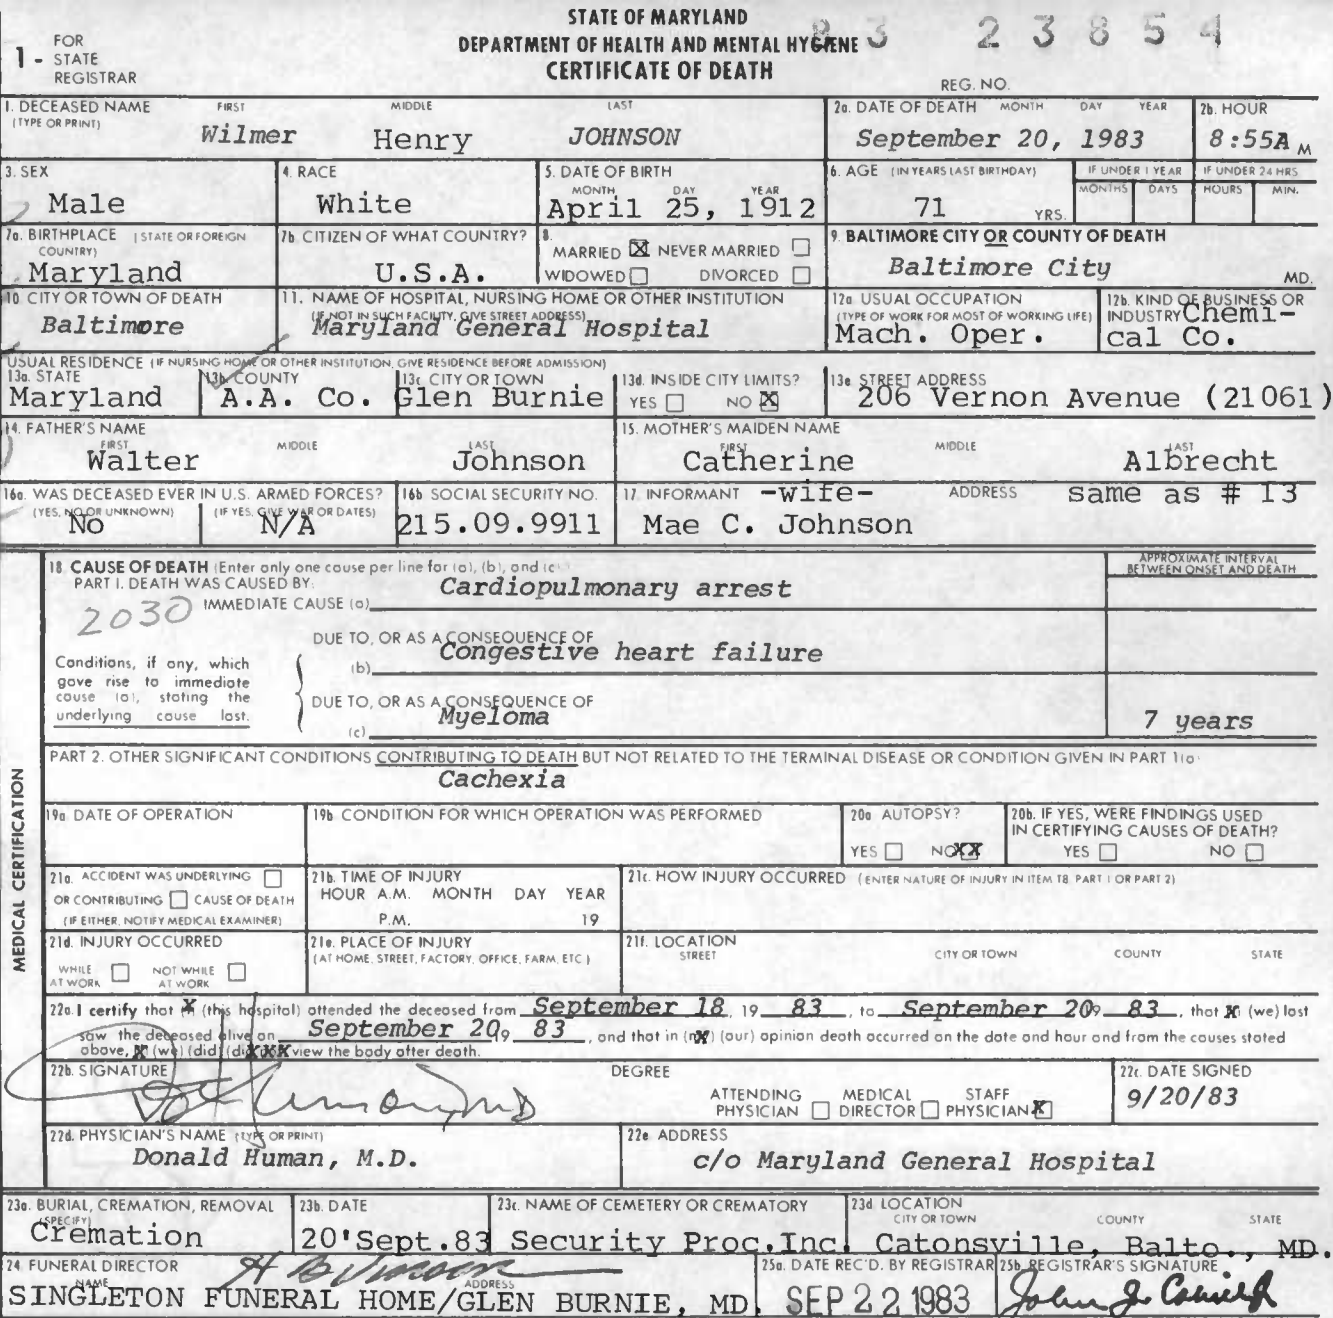 STATE OF MARYLAND
DEPARTMENT OF HEALTH AND MENTAL HYGIENE
CERTIFICATE OF DEATH
83 23854
1 - FOR STATE REGISTRAR
REG. NO.
1. DECEASED NAME (TYPE OR PRINT) FIRST MIDDLE LAST
Wilmer Henry JOHNSON
2a. DATE OF DEATH MONTH DAY YEAR
September 20, 1983
2b. HOUR
8:55A M
3. SEX
Male
4. RACE
White
5. DATE OF BIRTH
MONTH DAY YEAR
April 25, 1912
6. AGE (IN YEARS LAST BIRTHDAY)
71 YRS.
IF UNDER 1 YEAR
MONTHS DAYS
IF UNDER 24 HRS
HOURS MIN.
7a. BIRTHPLACE (STATE OR FOREIGN COUNTRY)
Maryland
7b. CITIZEN OF WHAT COUNTRY?
U.S.A.
8.
MARRIED X NEVER MARRIED
WIDOWED DIVORCED
9. BALTIMORE CITY OR COUNTY OF DEATH
Baltimore City MD.
10. CITY OR TOWN OF DEATH
Baltimore
11. NAME OF HOSPITAL, NURSING HOME OR OTHER INSTITUTION
(IF NOT IN SUCH FACILITY, GIVE STREET ADDRESS)
Maryland General Hospital
12a. USUAL OCCUPATION
(TYPE OF WORK FOR MOST OF WORKING LIFE)
Mach. Oper.
12b. KIND OF BUSINESS OR
INDUSTRY Chemi-
cal Co.
USUAL RESIDENCE (IF NURSING HOME OR OTHER INSTITUTION, GIVE RESIDENCE BEFORE ADMISSION)
13a. STATE
Maryland
13b. COUNTY
A.A. Co.
13c. CITY OR TOWN
Glen Burnie
13d. INSIDE CITY LIMITS?
YES NO X
13e. STREET ADDRESS
206 Vernon Avenue (21061)
14. FATHER'S NAME
FIRST MIDDLE LAST
Walter Johnson
15. MOTHER'S MAIDEN NAME
FIRST MIDDLE LAST
Catherine Albrecht
16a. WAS DECEASED EVER IN U.S. ARMED FORCES?
(YES, NO OR UNKNOWN) (IF YES, GIVE WAR OR DATES)
No N/A
16b. SOCIAL SECURITY NO.
215.09.9911
17. INFORMANT -wife- ADDRESS same as # I3
Mae C. Johnson
MEDICAL CERTIFICATION
18. CAUSE OF DEATH (Enter only one cause per line for (a), (b), and (c))
APPROXIMATE INTERVAL
BETWEEN ONSET AND DEATH
PART 1. DEATH WAS CAUSED BY:
2030
IMMEDIATE CAUSE (a) Cardiopulmonary arrest
DUE TO, OR AS A CONSEQUENCE OF
(b) Congestive heart failure
Conditions, if any, which
gave rise to immediate
cause (a), stating the
underlying cause last.
DUE TO, OR AS A CONSEQUENCE OF
(c) Myeloma 7 years
PART 2. OTHER SIGNIFICANT CONDITIONS CONTRIBUTING TO DEATH BUT NOT RELATED TO THE TERMINAL DISEASE OR CONDITION GIVEN IN PART 1(a)
Cachexia
19a. DATE OF OPERATION
19b. CONDITION FOR WHICH OPERATION WAS PERFORMED
20a. AUTOPSY?
YES NO XX
20b. IF YES, WERE FINDINGS USED
IN CERTIFYING CAUSES OF DEATH?
YES NO
21a. ACCIDENT WAS UNDERLYING
OR CONTRIBUTING CAUSE OF DEATH
(IF EITHER, NOTIFY MEDICAL EXAMINER)
21b. TIME OF INJURY
HOUR A.M. MONTH DAY YEAR
P.M. 19
21c. HOW INJURY OCCURRED (ENTER NATURE OF INJURY IN ITEM 18, PART 1 OR PART 2)
21d. INJURY OCCURRED
WHILE AT WORK NOT WHILE AT WORK
21e. PLACE OF INJURY
(AT HOME, STREET, FACTORY, OFFICE, FARM, ETC.)
21f. LOCATION
STREET CITY OR TOWN COUNTY STATE
22a. I certify that X (this hospital) attended the deceased from September 18, 19 83, to September 20 19 83, that X (we) last
saw the deceased alive on September 20 19 83, and that in (X) (our) opinion death occurred on the date and hour and from the causes stated
above, X (we) (did) XXX view the body after death.
22b. SIGNATURE
MD
DEGREE
ATTENDING PHYSICIAN MEDICAL DIRECTOR STAFF PHYSICIAN X
22c. DATE SIGNED
9/20/83
22d. PHYSICIAN'S NAME (TYPE OR PRINT)
Donald Human, M.D.
22e. ADDRESS
c/o Maryland General Hospital
23a. BURIAL, CREMATION, REMOVAL
(SPECIFY)
Cremation
23b. DATE
20'Sept.83
23c. NAME OF CEMETERY OR CREMATORY
Security Proc.Inc.
23d. LOCATION
CITY OR TOWN COUNTY STATE
Catonsville, Balto., MD.
24. FUNERAL DIRECTOR
NAME ADDRESS
SINGLETON FUNERAL HOME/GLEN BURNIE, MD.
25a. DATE REC'D. BY REGISTRAR
SEP 22 1983
25b. REGISTRAR'S SIGNATURE
John J.